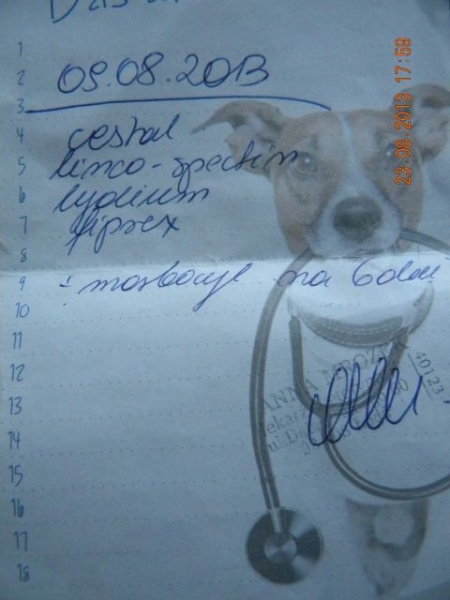 1
2 09.08.2013
3
4 cestal
5 linco-spectin
6 lydium
7 fiprex
8
9 + marbocyl na 6 dni
10
11
12
13
14
15
16
17
18
23 08 2013 17:59
ANNA
40123